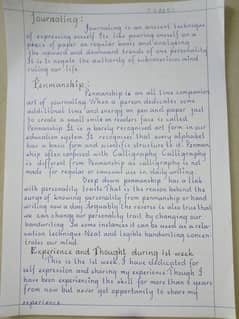 Journaling:
Journaling is an ancient technique
of expressing oneself. Its like pouring oneself on a
peace of paper on regular basis and analysing
the upward and downward trends of one personality.
It is to negate the authority of subconscious mind
ruling our life.
Penmanship:
Penmanship is an all time companion
art of journaling. When a person dedicates some
additional time and energy on pen and paper just
to create a small smile on readers face is called
Penmanship. It is a barely recognised art form in our
education system. It recognises that every alphabet
has a basic form and scientific structure to it. Penman
ship often confused with Calligraphy. Calligraphy
is different from Penmanship as calligraphy is not
made for regular or concised use in daily writing.
Deep down penmanship has a link
with personality traits. That is the reason behind the
surge of knowing personality from penmanship or hand
writing now a day. Arguably the reverse is also true that
we can change our personality trait by changing our
handwriting. In some instances it can be used as a rela-
xation technique. Neat and legible handwriting concen
trates our mind.
Experience and Thought during 1st week
This is the 1st week I have dedicated for
self expression and sharing my experience. Though I
have been experiencing the skill for more than 6 years
from now but never got opportunity to share my
experience.